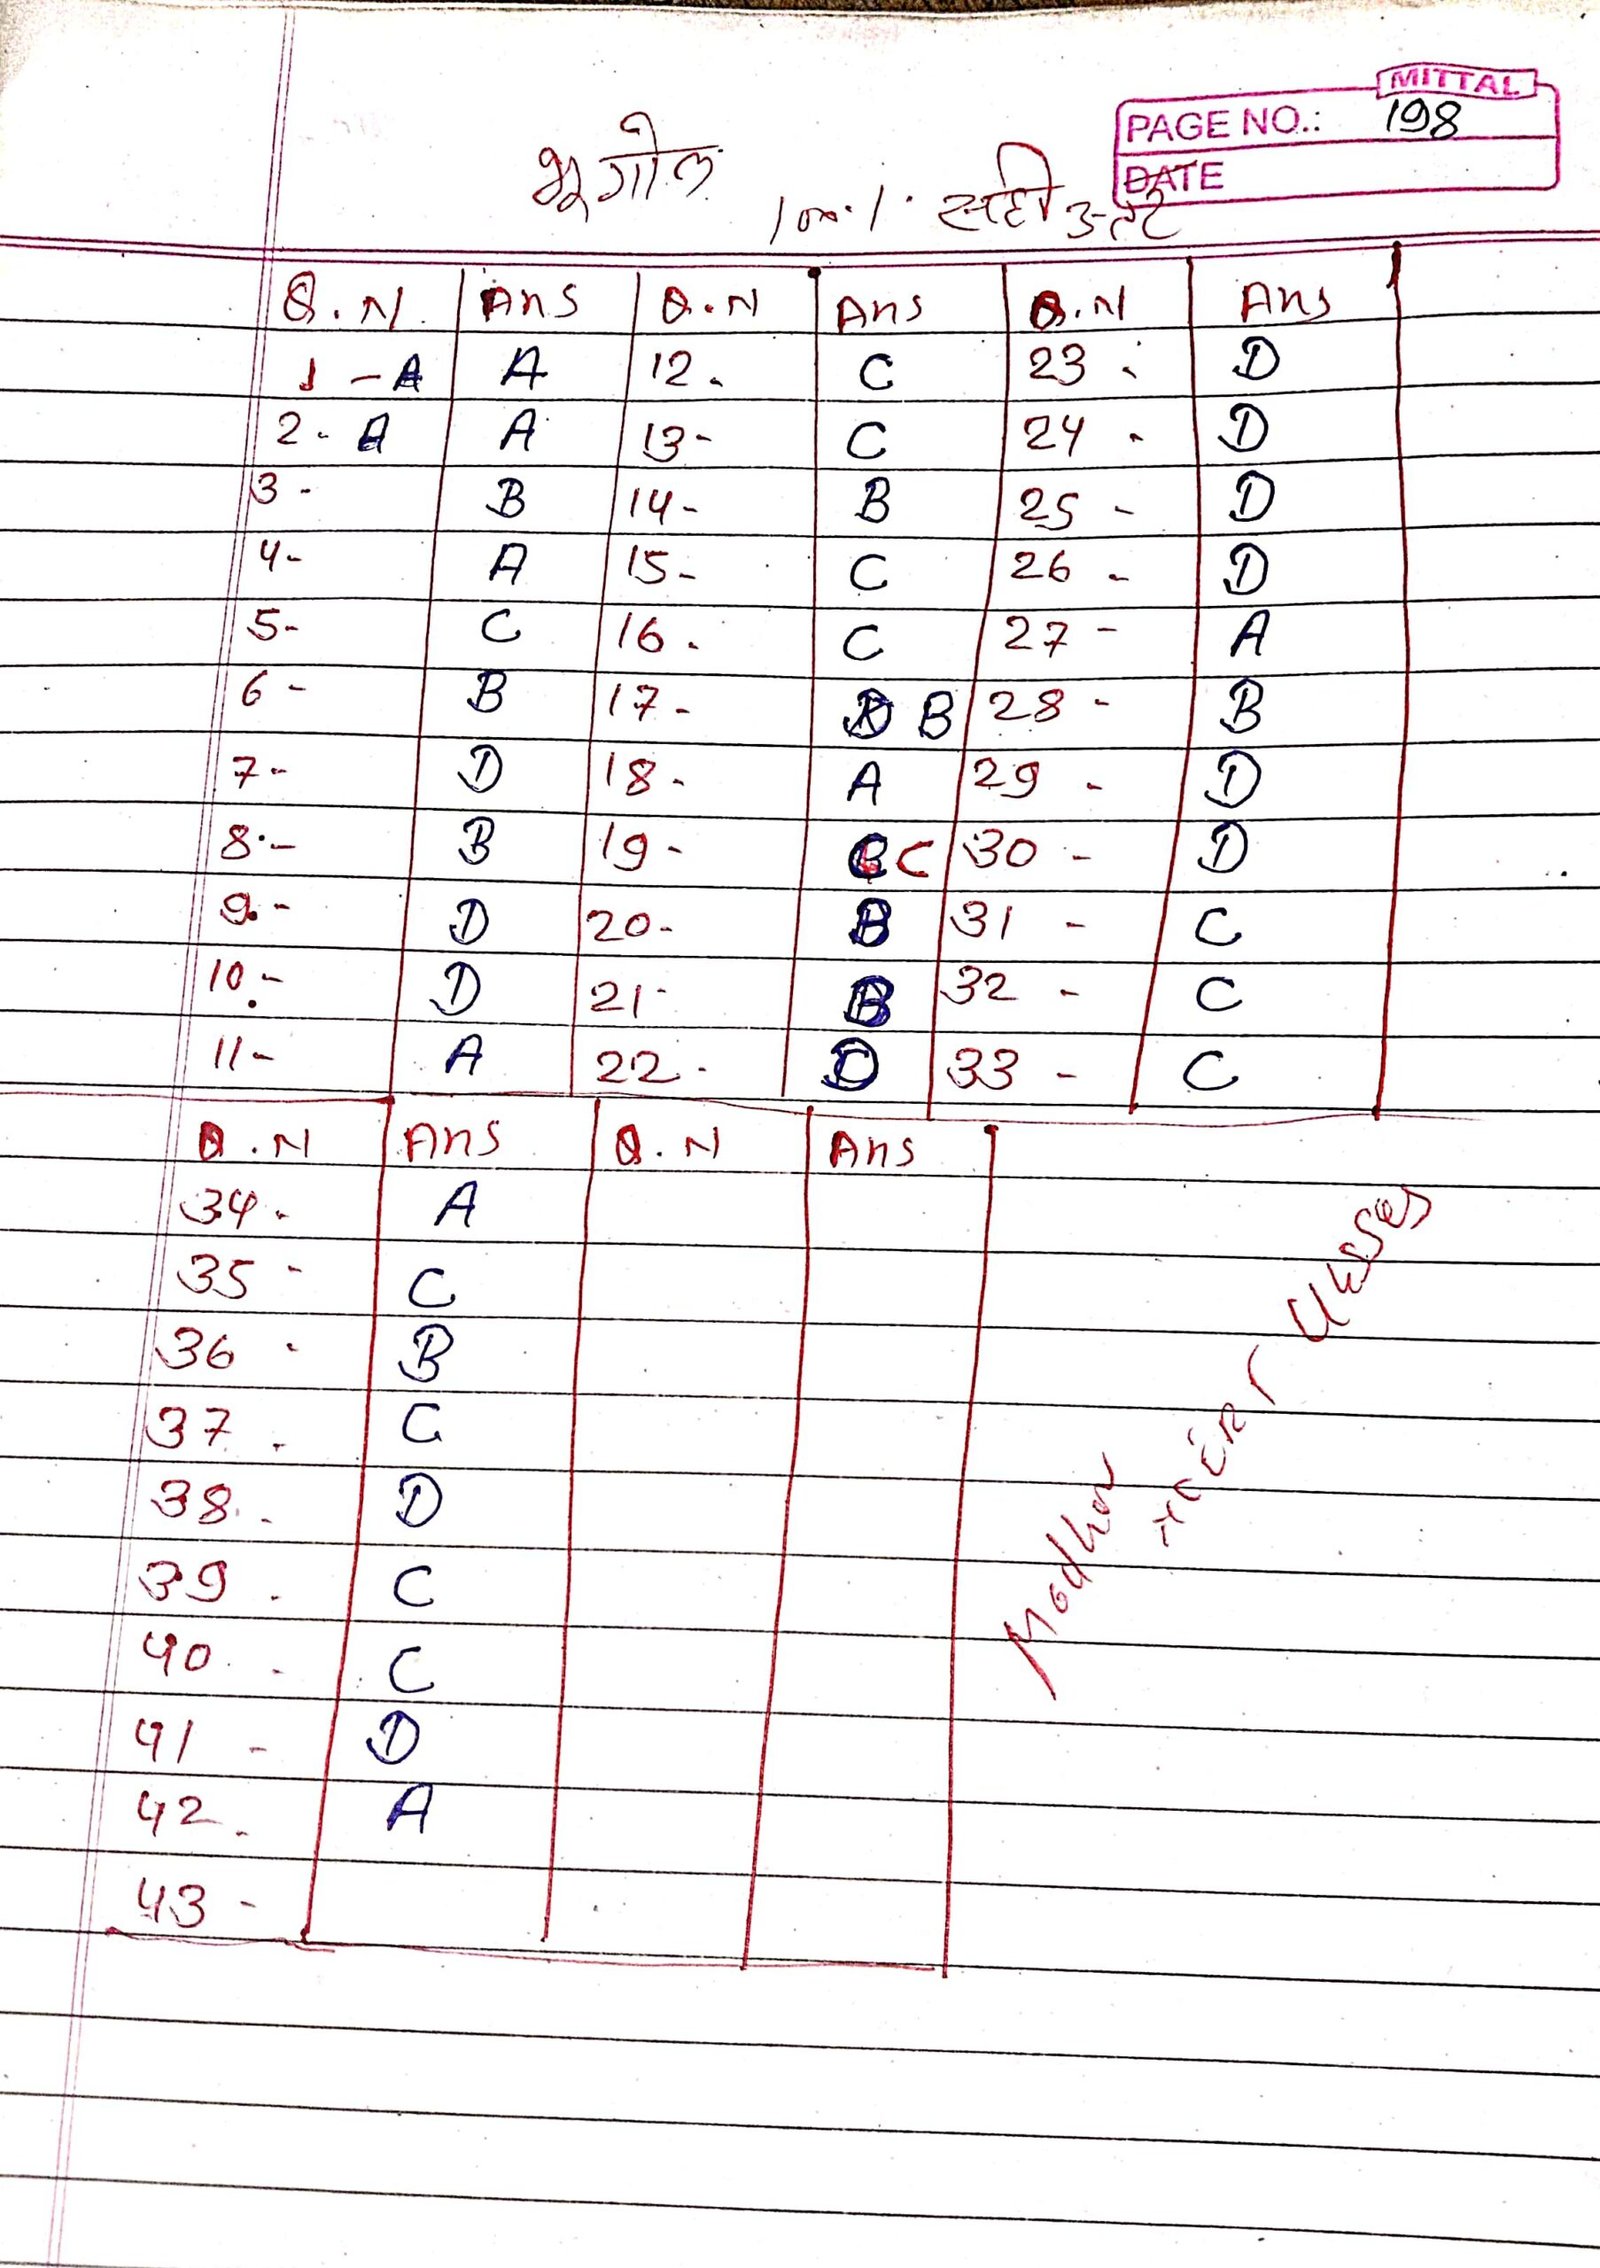 MITTAL
PAGE NO.: 198
DATE
भूगोल
100% सही उत्तर
Q.N Ans Q.N Ans Q.N Ans
1 - A A 12. C 23. D
2. A A 13- C 24. D
3- B 14- B 25- D
4- A 15- C 26- D
5- C 16. C 27- A
6- B 17- B 28- B
7- D 18- A 29- D
8.- B 19- C 30- D
9.- D 20- B 31- C
10.- D 21- B 32- C
11- A 22- D 33- C
Q.N Ans Q.N Ans
34. A
35- C
36. B
37. C
38. D
39. C
40. C
41- D
42. A
43-
Madhav